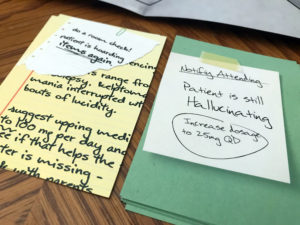 do a room check!
patient is hoarding
items again
encing
range from
epsy, keptom
mania interrupted with
bouts of lucidity.
suggest upping medi
to 100 mg per day and
see if that helps the
ter is missing -
with parents
Notifig Attending
Patient is still
Hallucinating
Increase dosage
to 25mg QD